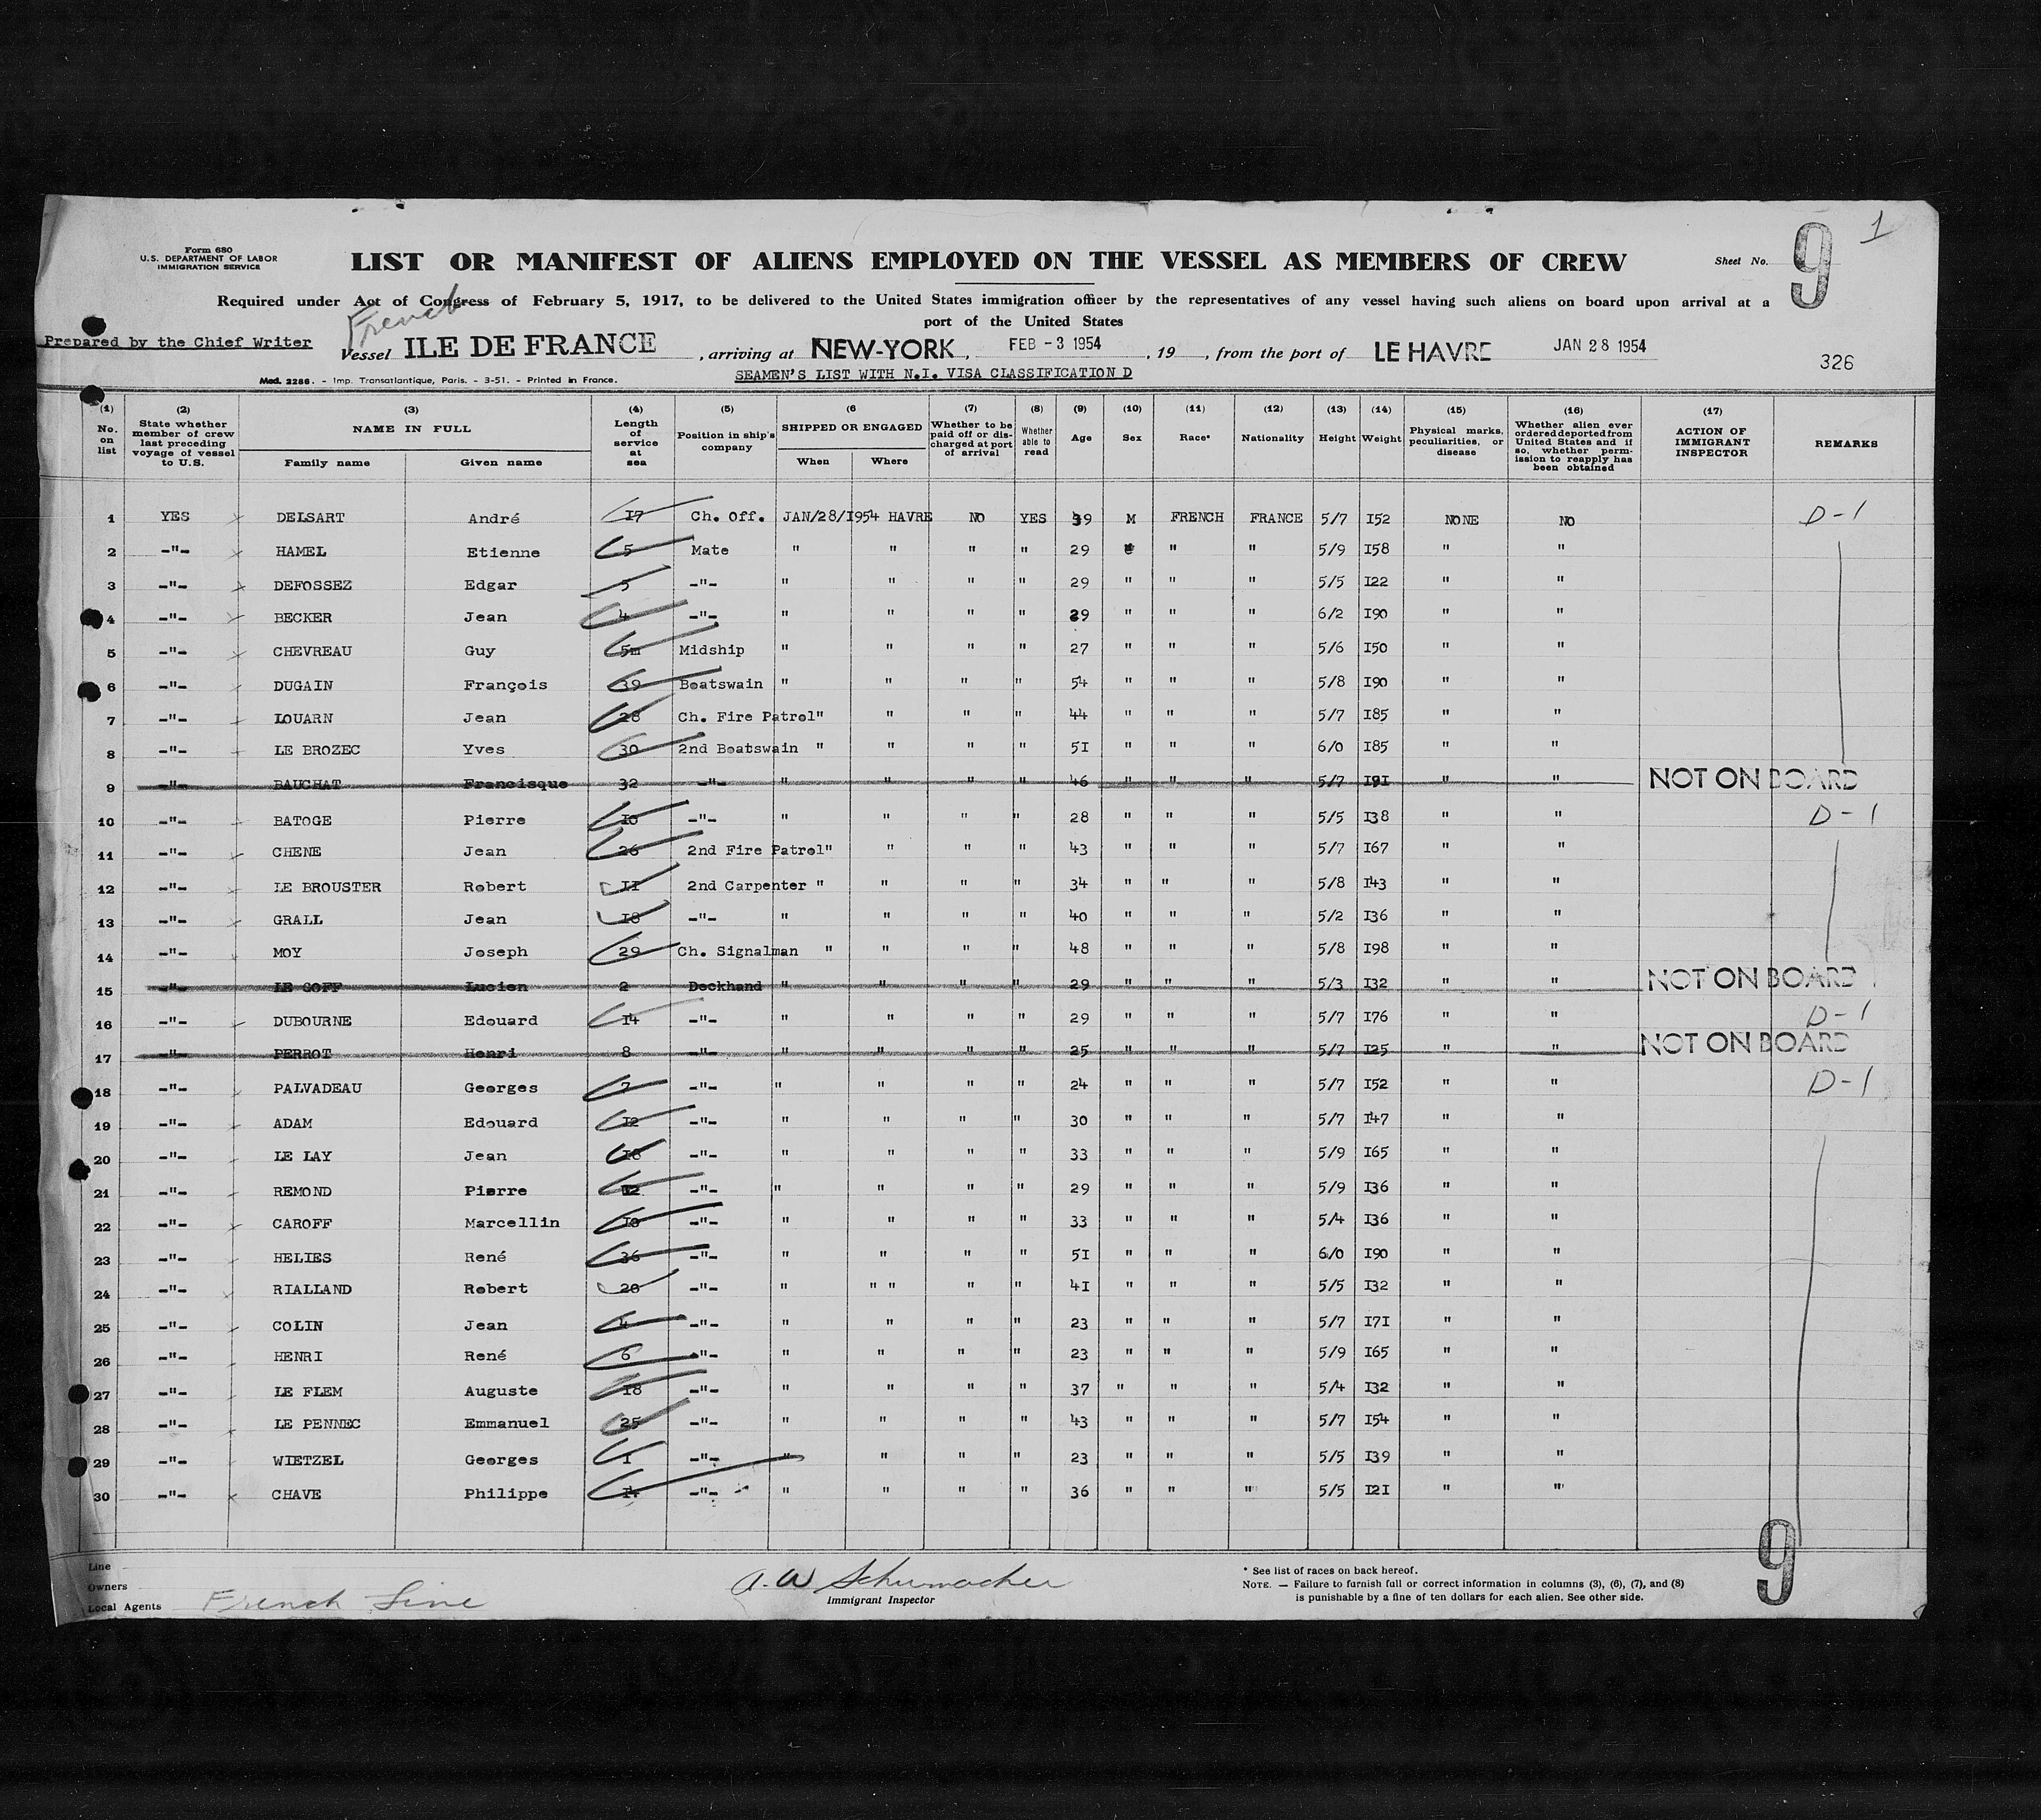 Form 680
U.S. DEPARTMENT OF LABOR
IMMIGRATION SERVICE
LIST OR MANIFEST OF ALIENS EMPLOYED ON THE VESSEL AS MEMBERS OF CREW
Sheet No. 9 1
Required under Act of Congress of February 5, 1917, to be delivered to the United States immigration officer by the representatives of any vessel having such aliens on board upon arrival at a
port of the United States
French
Prepared by the Chief Writer
Vessel ILE DE FRANCE, arriving at NEW-YORK, FEB -3 1954, 19 , from the port of LE HAVRE JAN 28 1954
326
Mod. 2286. - Imp. Transatlantique, Paris. - 3-51. - Printed in France.
SEAMEN'S LIST WITH N.I. VISA CLASSIFICATION D
(1) No. on list
(2) State whether member of crew last preceding voyage of vessel to U.S.
(3) NAME IN FULL Family name Given name
(4) Length of service at sea
(5) Position in ship's company
(6 SHIPPED OR ENGAGED When Where
(7) Whether to be paid off or discharged at port of arrival
(8) Whether able to read
(9) Age
(10) Sex
(11) Race*
(12) Nationality
(13) Height
(14) Weight
(15) Physical marks, peculiarities, or disease
(16) Whether alien ever ordered deported from United States and if so, whether permission to reapply has been obtained
(17) ACTION OF IMMIGRANT INSPECTOR
REMARKS
1 YES DELSART André 17 Ch. Off. JAN/28/1954 HAVRE NO YES 39 M FRENCH FRANCE 5/7 152 NONE NO D-1
2 -"- HAMEL Etienne 5 Mate " " " " 29 " " 5/9 158 " "
3 -"- DEFOSSEZ Edgar 5 -"- " " " " 29 " " " 5/5 122 " "
4 -"- BECKER Jean 4 -"- " " " " 29 " " " 6/2 190 " "
5 -"- CHEVREAU Guy 5m Midship " " " " 27 " " " 5/6 150 " "
6 -"- DUGAIN François 39 Boatswain " " " " 54 " " " 5/8 190 " "
7 -"- LOUARN Jean 28 Ch. Fire Patrol" " " " 44 " " " 5/7 185 " "
8 -"- LE BROZEC Yves 30 2nd Boatswain " " " " 51 " " " 6/0 185 " "
9 -"- BAUCHAT Francisque 32 -"- " " " " 46 " " " 5/7 191 " " NOT ON BOARD
10 -"- BATOGE Pierre 10 -"- " " " " 28 " " " 5/5 138 " " D-1
11 -"- CHENE Jean 26 2nd Fire Patrol" " " " 43 " " " 5/7 167 " "
12 -"- LE BROUSTER Robert 11 2nd Carpenter " " " " 34 " " " 5/8 143 " "
13 -"- GRALL Jean 18 -"- " " " " 40 " " " 5/2 136 " "
14 -"- MOY Joseph 29 Ch. Signalman " " " " 48 " " " 5/8 198 " "
15 -"- LE GOFF Lucien 2 Deckhand " " " " 29 " " " 5/3 132 " " NOT ON BOARD
16 -"- DUBOURNE Edouard 14 -"- " " " " 29 " " " 5/7 176 " " D-1
17 -"- PERROT Henri 8 -"- " " " " 25 " " " 5/7 125 " " NOT ON BOARD
18 -"- PALVADEAU Georges 7 -"- " " " " 24 " " " 5/7 152 " " D-1
19 -"- ADAM Edouard 12 -"- " " " " 30 " " " 5/7 147 " "
20 -"- LE LAY Jean 18 -"- " " " " 33 " " " 5/9 165 " "
21 -"- REMOND Pierre 12 -"- " " " " 29 " " " 5/9 136 " "
22 -"- CAROFF Marcellin 10 -"- " " " " 33 " " " 5/4 136 " "
23 -"- HELIES René 36 -"- " " " " 51 " " " 6/0 190 " "
24 -"- RIALLAND Robert 20 -"- " " " " " 41 " " " 5/5 132 " "
25 -"- COLIN Jean 4 -"- " " " " 23 " " " 5/7 171 " "
26 -"- HENRI René 6 -"- " " " " 23 " " " 5/9 165 " "
27 -"- LE FLEM Auguste 18 -"- " " " " 37 " " " 5/4 132 " "
28 -"- LE PENNEC Emmanuel 25 -"- " " " " 43 " " " 5/7 154 " "
29 -"- WIETZEL Georges 1 -"- " " " " 23 " " " 5/5 139 " "
30 -"- CHAVE Philippe 14 -"- " " " " 36 " " " 5/5 121 " "
9
Line
Owners
Local Agents French Line
A. W Schumacher
Immigrant Inspector
* See list of races on back hereof.
NOTE. — Failure to furnish full or correct information in columns (3), (6), (7), and (8)
is punishable by a fine of ten dollars for each alien. See other side.